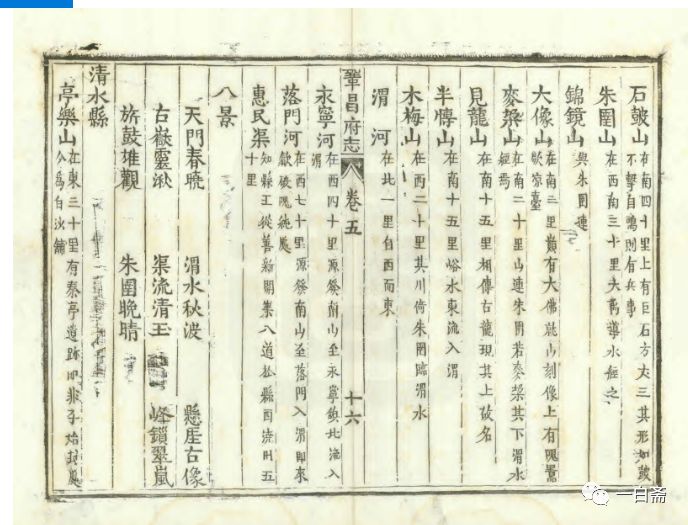 石鼓山 在南四十里上有巨石方丈三其形如鼓
不擊自鳴則有兵事
朱圉山 在西南三十里大禹導水經之
錦鏡山 與朱圉連
大像山 在南二里巔有大佛就山刻像上有隗囂
歇凉臺
麥積山 在南二十里山連朱圉若麥積其下渭水
經焉
見龍山 在南十五里相傳古龍現其上故名
半博山 在南十五里峪水東流入渭
木梅山 在西二十里其川倚朱圉臨渭水
渭河 在北一里自西而東
鞏昌府志 卷五 十六
永寧河 在西四十里源發南山至永寧鎮北流入
渭
落門河 在西七十里源發南山至落門入渭即來
歙破隗純處
惠民渠 知縣王從善新開渠八道於縣西澆田五
十里
八景
天門春曉 渭水秋波 懸崖古像
古嶽靈湫 渠流清玉 峰鎖翠嵐
旂鼓堆觀 朱圉晚晴
清水縣
亭樂山 在東三十里有秦亭遺跡即非子始封處
今為白沙舖
一白斋